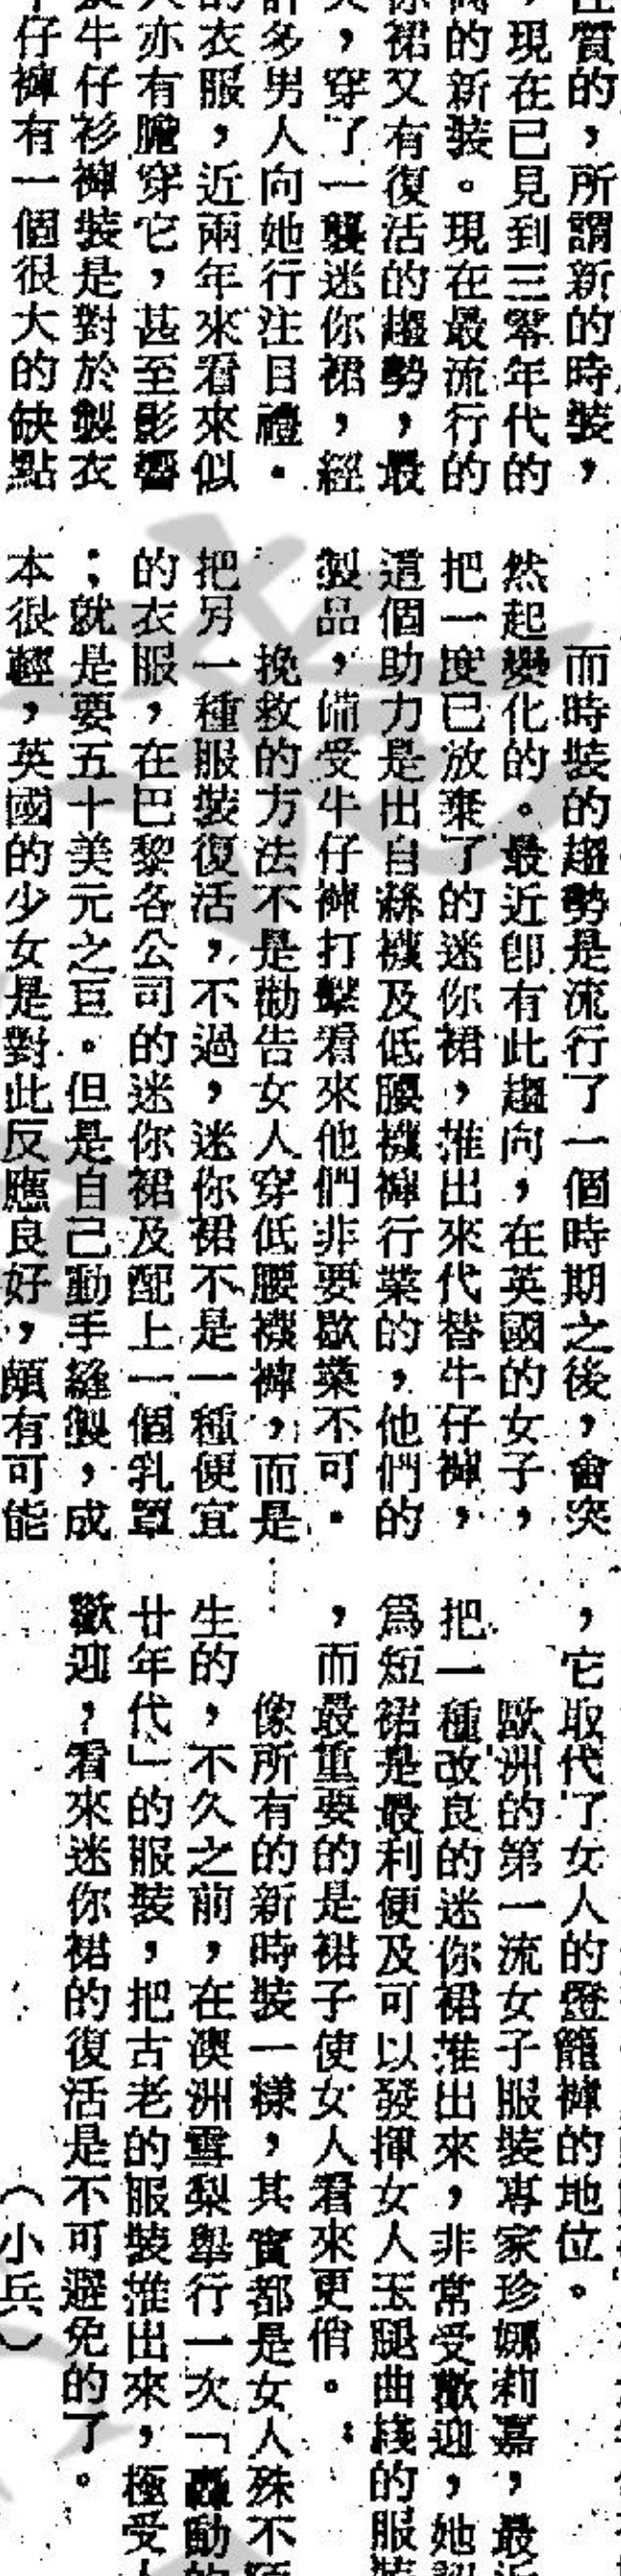 質的，所謂新的時裝，
，現在已見到三零年代的
的新裝。現在最流行的
裙又有復活的趨勢，最
，穿了一襲迷你裙，經
多男人向她行注目禮．
衣服，近兩年來看來似
亦有膽穿它，甚至影響
牛仔衫褲裝是對於製衣
仔褲有一個很大的缺點
而時裝的趨勢是流行了一個時期之後，會突
然起變化的。最近卽有此趨向，在英國的女子，
把一度已放棄了的迷你裙，推出來代替牛仔褲，
這個助力是出自絲襪及低腰襪褲行業的，他們的
製品，備受牛仔褲打擊看來他們非要歇業不可．
挽救的方法不是勸告女人穿低腰襪褲，而是
把另一種服裝復活，不過，迷你裙不是一種便宜
的衣服，在巴黎各公司的迷你裙及配上一個乳罩
；就是要五十美元之巨。但是自己動手縫製，成
本很輕，英國的少女是對此反應良好，頗有可能
，它取代了女人的燈籠褲的地位。
歐洲的第一流女子服裝專家珍娜莉嘉，最
把一種改良的迷你裙推出來，非常受歡迎，她
爲短裙是最利便及可以發揮女人玉腿曲綫的服
，而最重要的是裙子使女人看來更俏。
像所有的新時裝一樣，其實都是女人殊不
生的，不久之前，在澳洲雪梨舉行一次「轟動
廿年代」的服裝，把古老的服裝推出來，極受
歡迎，看來迷你裙的復活是不可避免的了。
（小兵）